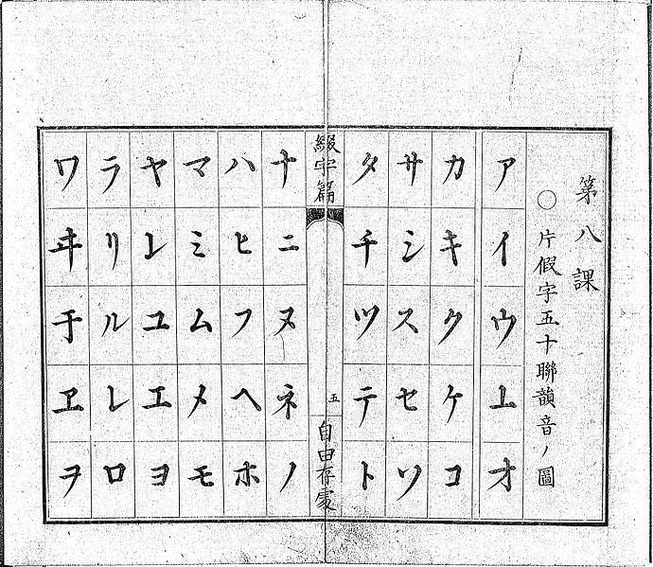 第八課
〇片假字五十聯韻音ノ圖
アイウオ
カキクケコ
サシスセソ
タチツテト
綴字篇
五
自由存處
ナニヌネノ
ハヒフヘホ
マミムメモ
ヤユエヨ
ラリルレロ
ワヰ于ヱヲ